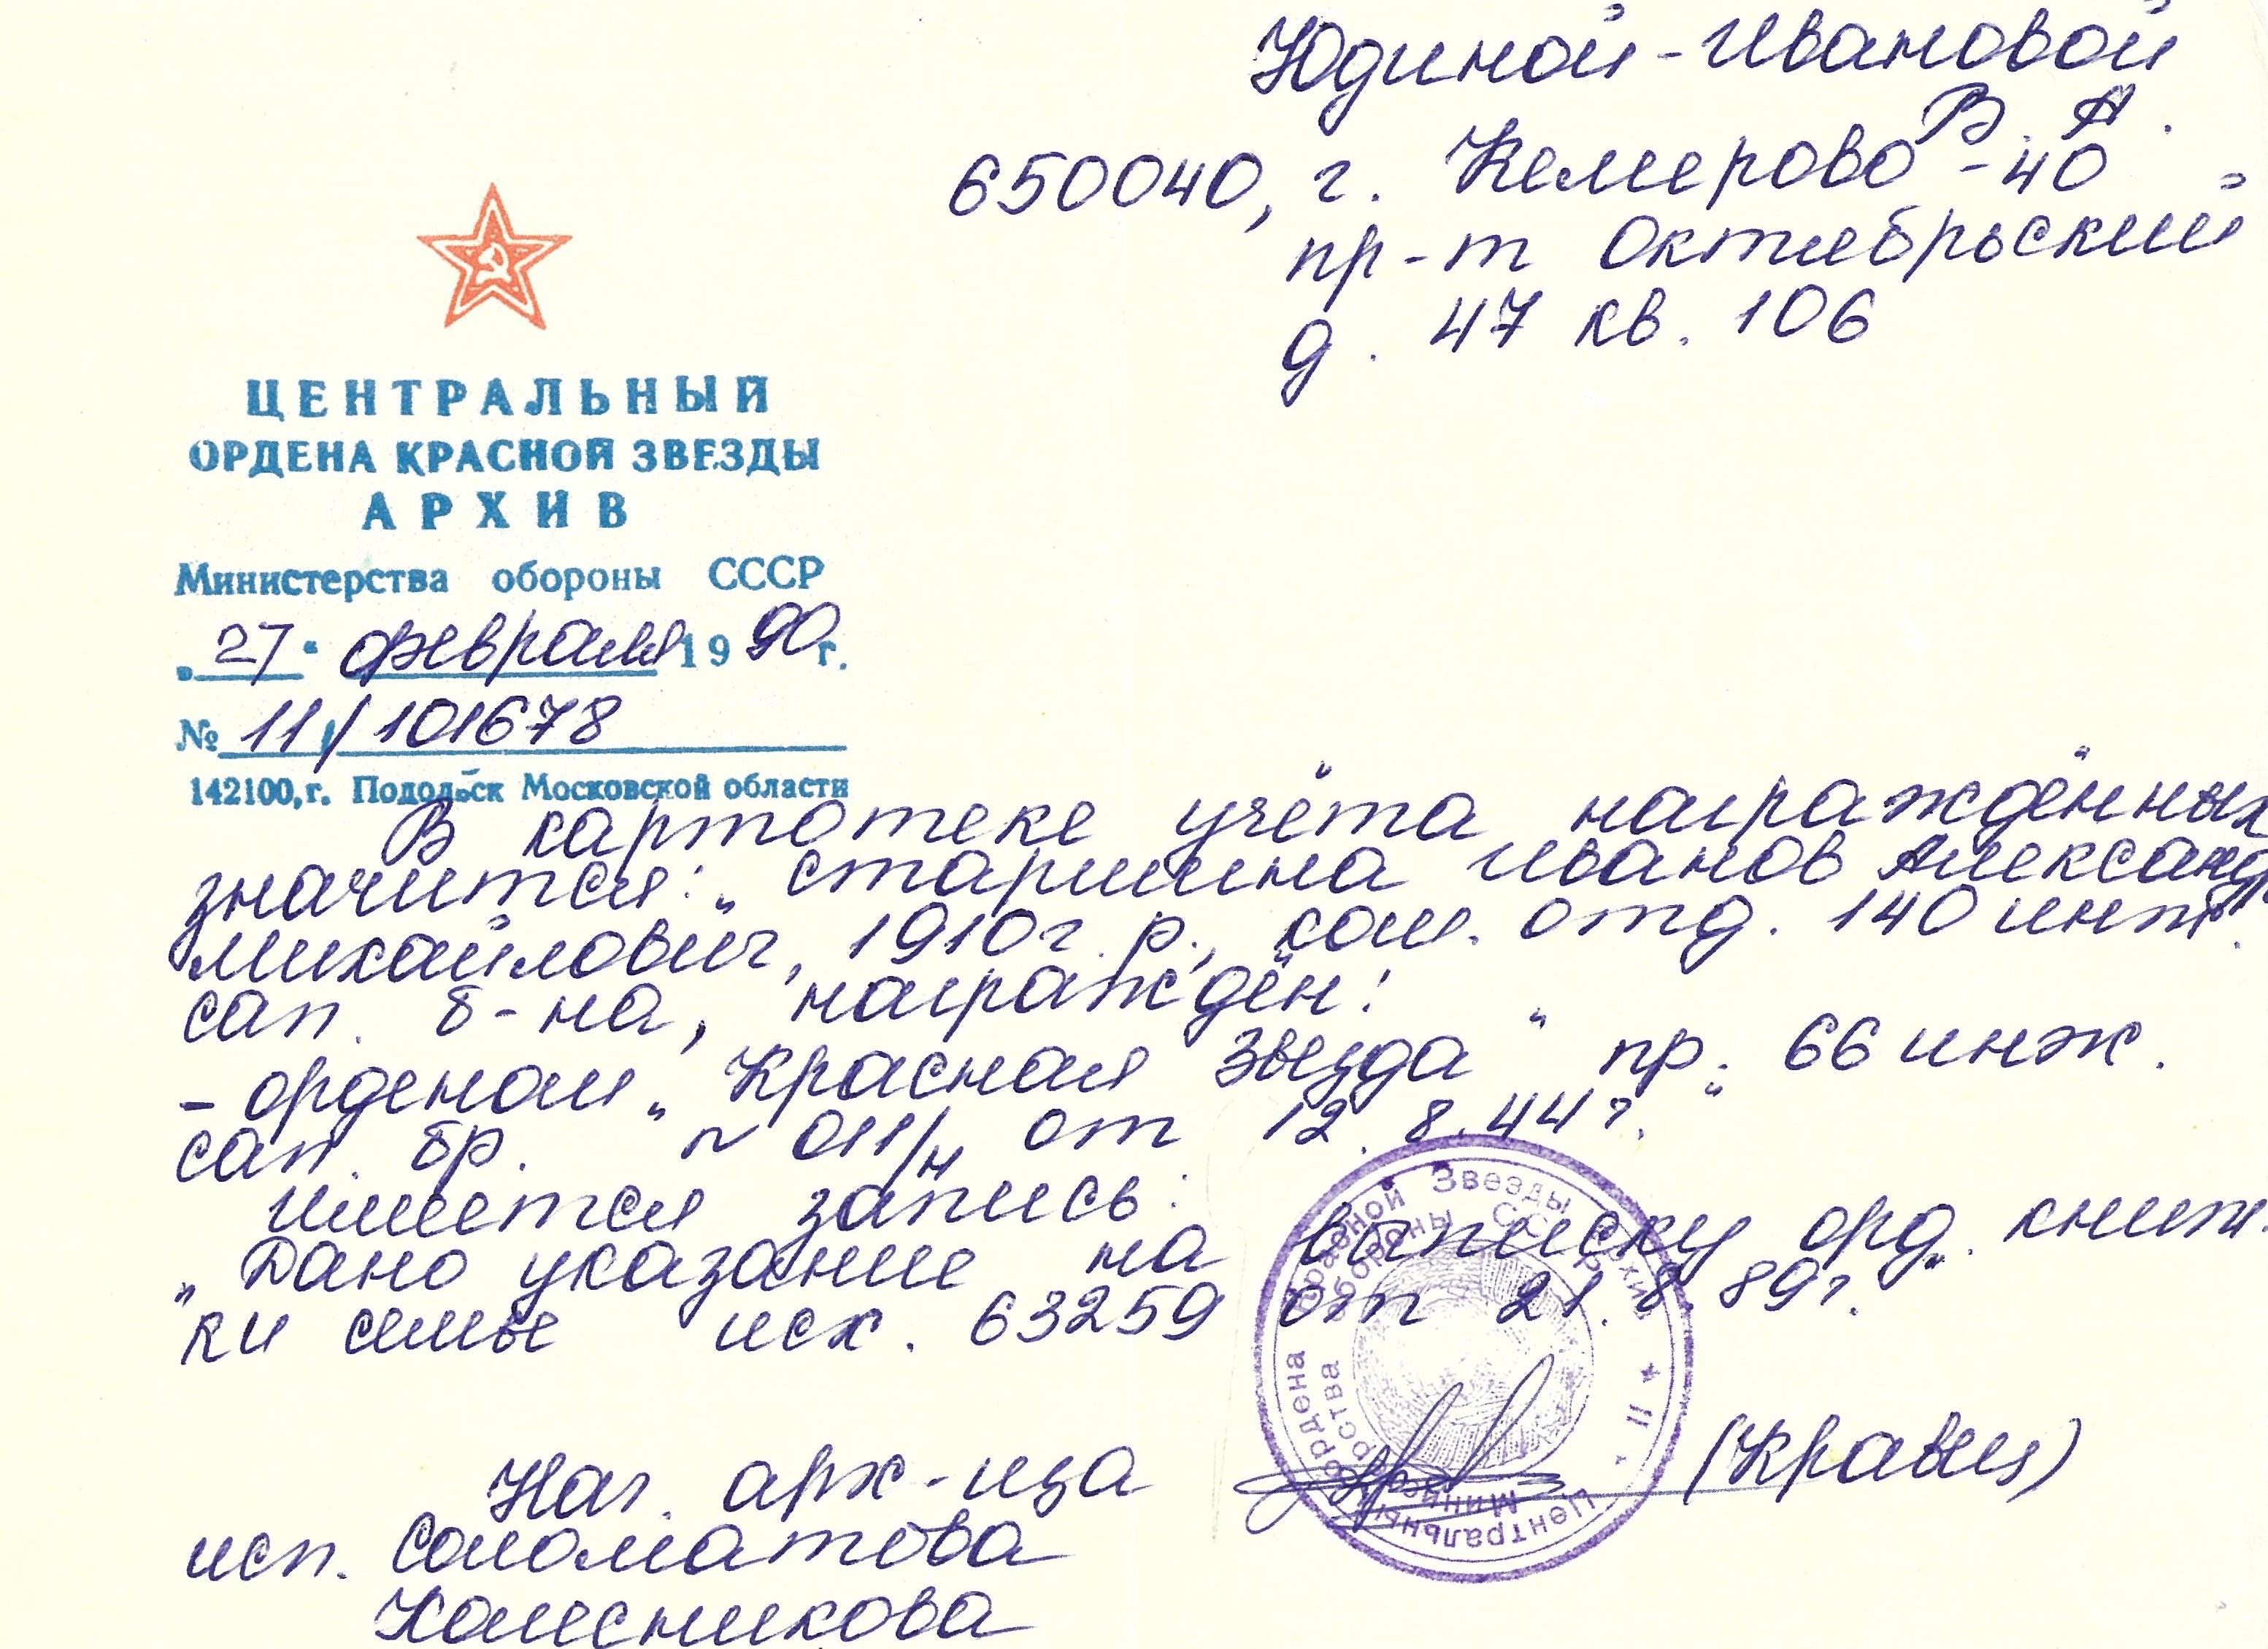 Юдиной-Ивановой
В. А.
650040, г. Кемерово-40
пр-т Октябрьский
д. 47 кв. 106
ЦЕНТРАЛЬНЫЙ
ОРДЕНА КРАСНОЙ ЗВЕЗДЫ
АРХИВ
Министерства обороны СССР
„27“ февраля 1990 г.
№ 11/101678
142100, г. Подольск Московской области
В картотеке учёта награждённых
значится: „старшина Иванов Александр
Михайлович, 1910 г. р., ком. отд. 140 инж.
сап. б-на, награждён:
– орденом „Красная Звезда" пр. 66 инж.
сап. бр. № 011/н от 12.8.44 г."
Имеется запись:
„Дано указание на выписку орд. книж-
ки семье исх. 63259 от 21.8.89г."
Нач. арх-ща (Кравец)
исп. Соломатова
Колесникова
Центральный ордена Красной Звезды архив
Министерства обороны СССР
* 11 *